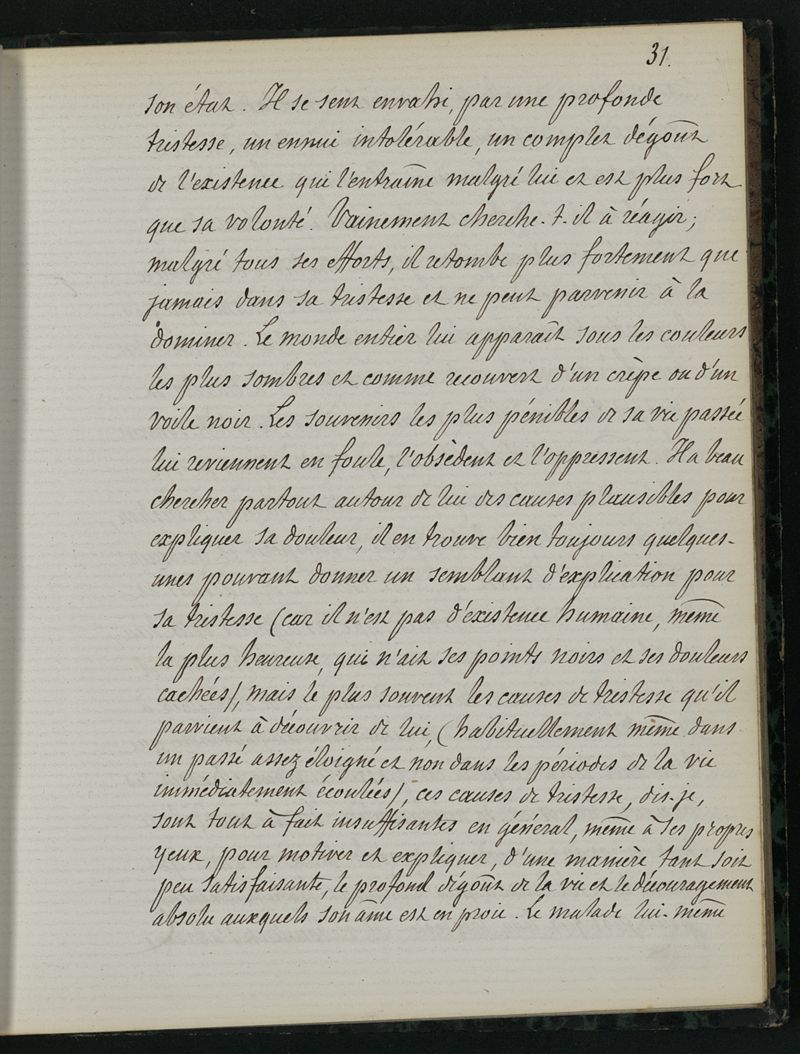 31.
son état. Il se sent envahi, par une profonde
tristesse, un ennui intolérable, un complet dégoût
de l'existence qui l'entraîne malgré lui et est plus fort
que sa volonté. Vainement cherche-t-il à réagir;
malgré tous ses efforts, il retombe plus fortement que
jamais dans sa tristesse et ne peut parvenir à la
dominer. Le monde entier lui apparaît sous les couleurs
les plus sombres et comme recouvert d'un crêpe ou d'un
voile noir. Les souvenirs les plus pénibles de sa vie passée
lui reviennent en foule, l'obsèdent et l'oppressent. Il a beau
chercher partout autour de lui des causes plausibles pour
expliquer sa douleur, il en trouve bien toujours quelques-
unes pouvant donner un semblant d'explication pour
sa tristesse (car il n'est pas d'existence humaine, même
la plus heureuse, qui n'ait ses points noirs et ses douleurs
cachées), mais le plus souvent les causes de tristesse qu'il
parvient à découvrir de lui, (habituellement même dans
un passé assez éloigné et non dans les périodes de la vie
immédiatement écoulées), ces causes de tristesse, dis-je,
sont tout à fait insuffisantes en général, même à ses propres
yeux, pour motiver et expliquer, d'une manière tant soit
peu satisfaisante, le profond dégoût de la vie et le découragement
absolu auxquels son âme est en proie. Le malade lui-même